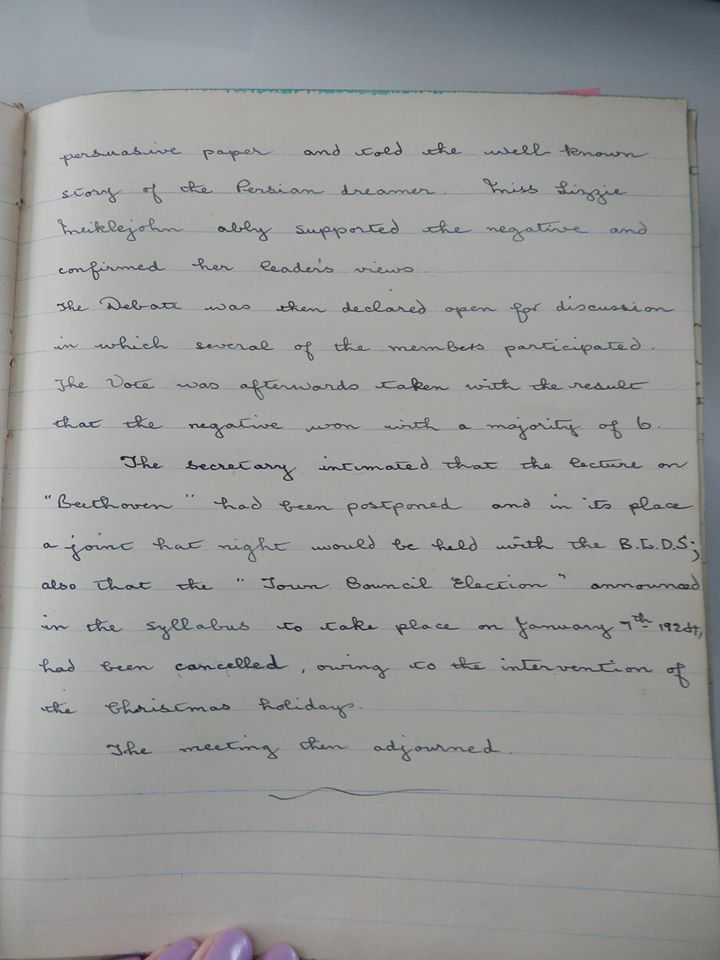 persuasive paper and told the well known
story of the Persian dreamer. Miss Lizzie
Meiklejohn ably supported the negative and
confirmed her leader's views.
The Debate was then declared open for discussion
in which several of the members participated.
The Vote was afterwards taken with the result
that the negative won with a majority of 6.
The secretary intimated that the lecture on
"Beethoven" had been postponed and in its place
a joint hat night would be held with the B.L.D.S;
also that the "Town Council Election" announced
in the syllabus to take place on January 7th 1924,
had been cancelled, owing to the intervention of
the Christmas holidays.
The meeting then adjourned.